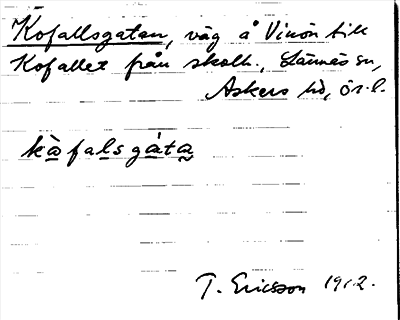 Kofallsgatan, väg å Vinön till
Kofallet från skolh., Lännäs sn,
Askers hd, ör. l.
kòfalsgàta
T. Ericsson 1912.